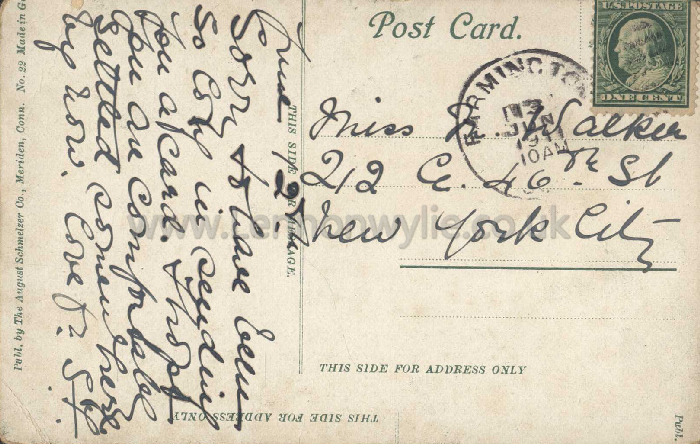 Post Card.
U.S. POSTAGE
ONE CENT
FARMINGTON
JUN
10 AM
Miss Walker
212 E. 46th St
New York City
THIS SIDE FOR ADDRESS ONLY
THIS SIDE FOR MESSAGE.
June 12
Sorry to have been
so long in sending
you a card. I hope
you are comfortably
settled somewhere
by now. Love
THIS SIDE FOR ADDRESS ONLY
Publ. by The August Schmelzer Co., Meriden, Conn. No. 22 Made in G
Publ.
www.lennonwylie.co.uk